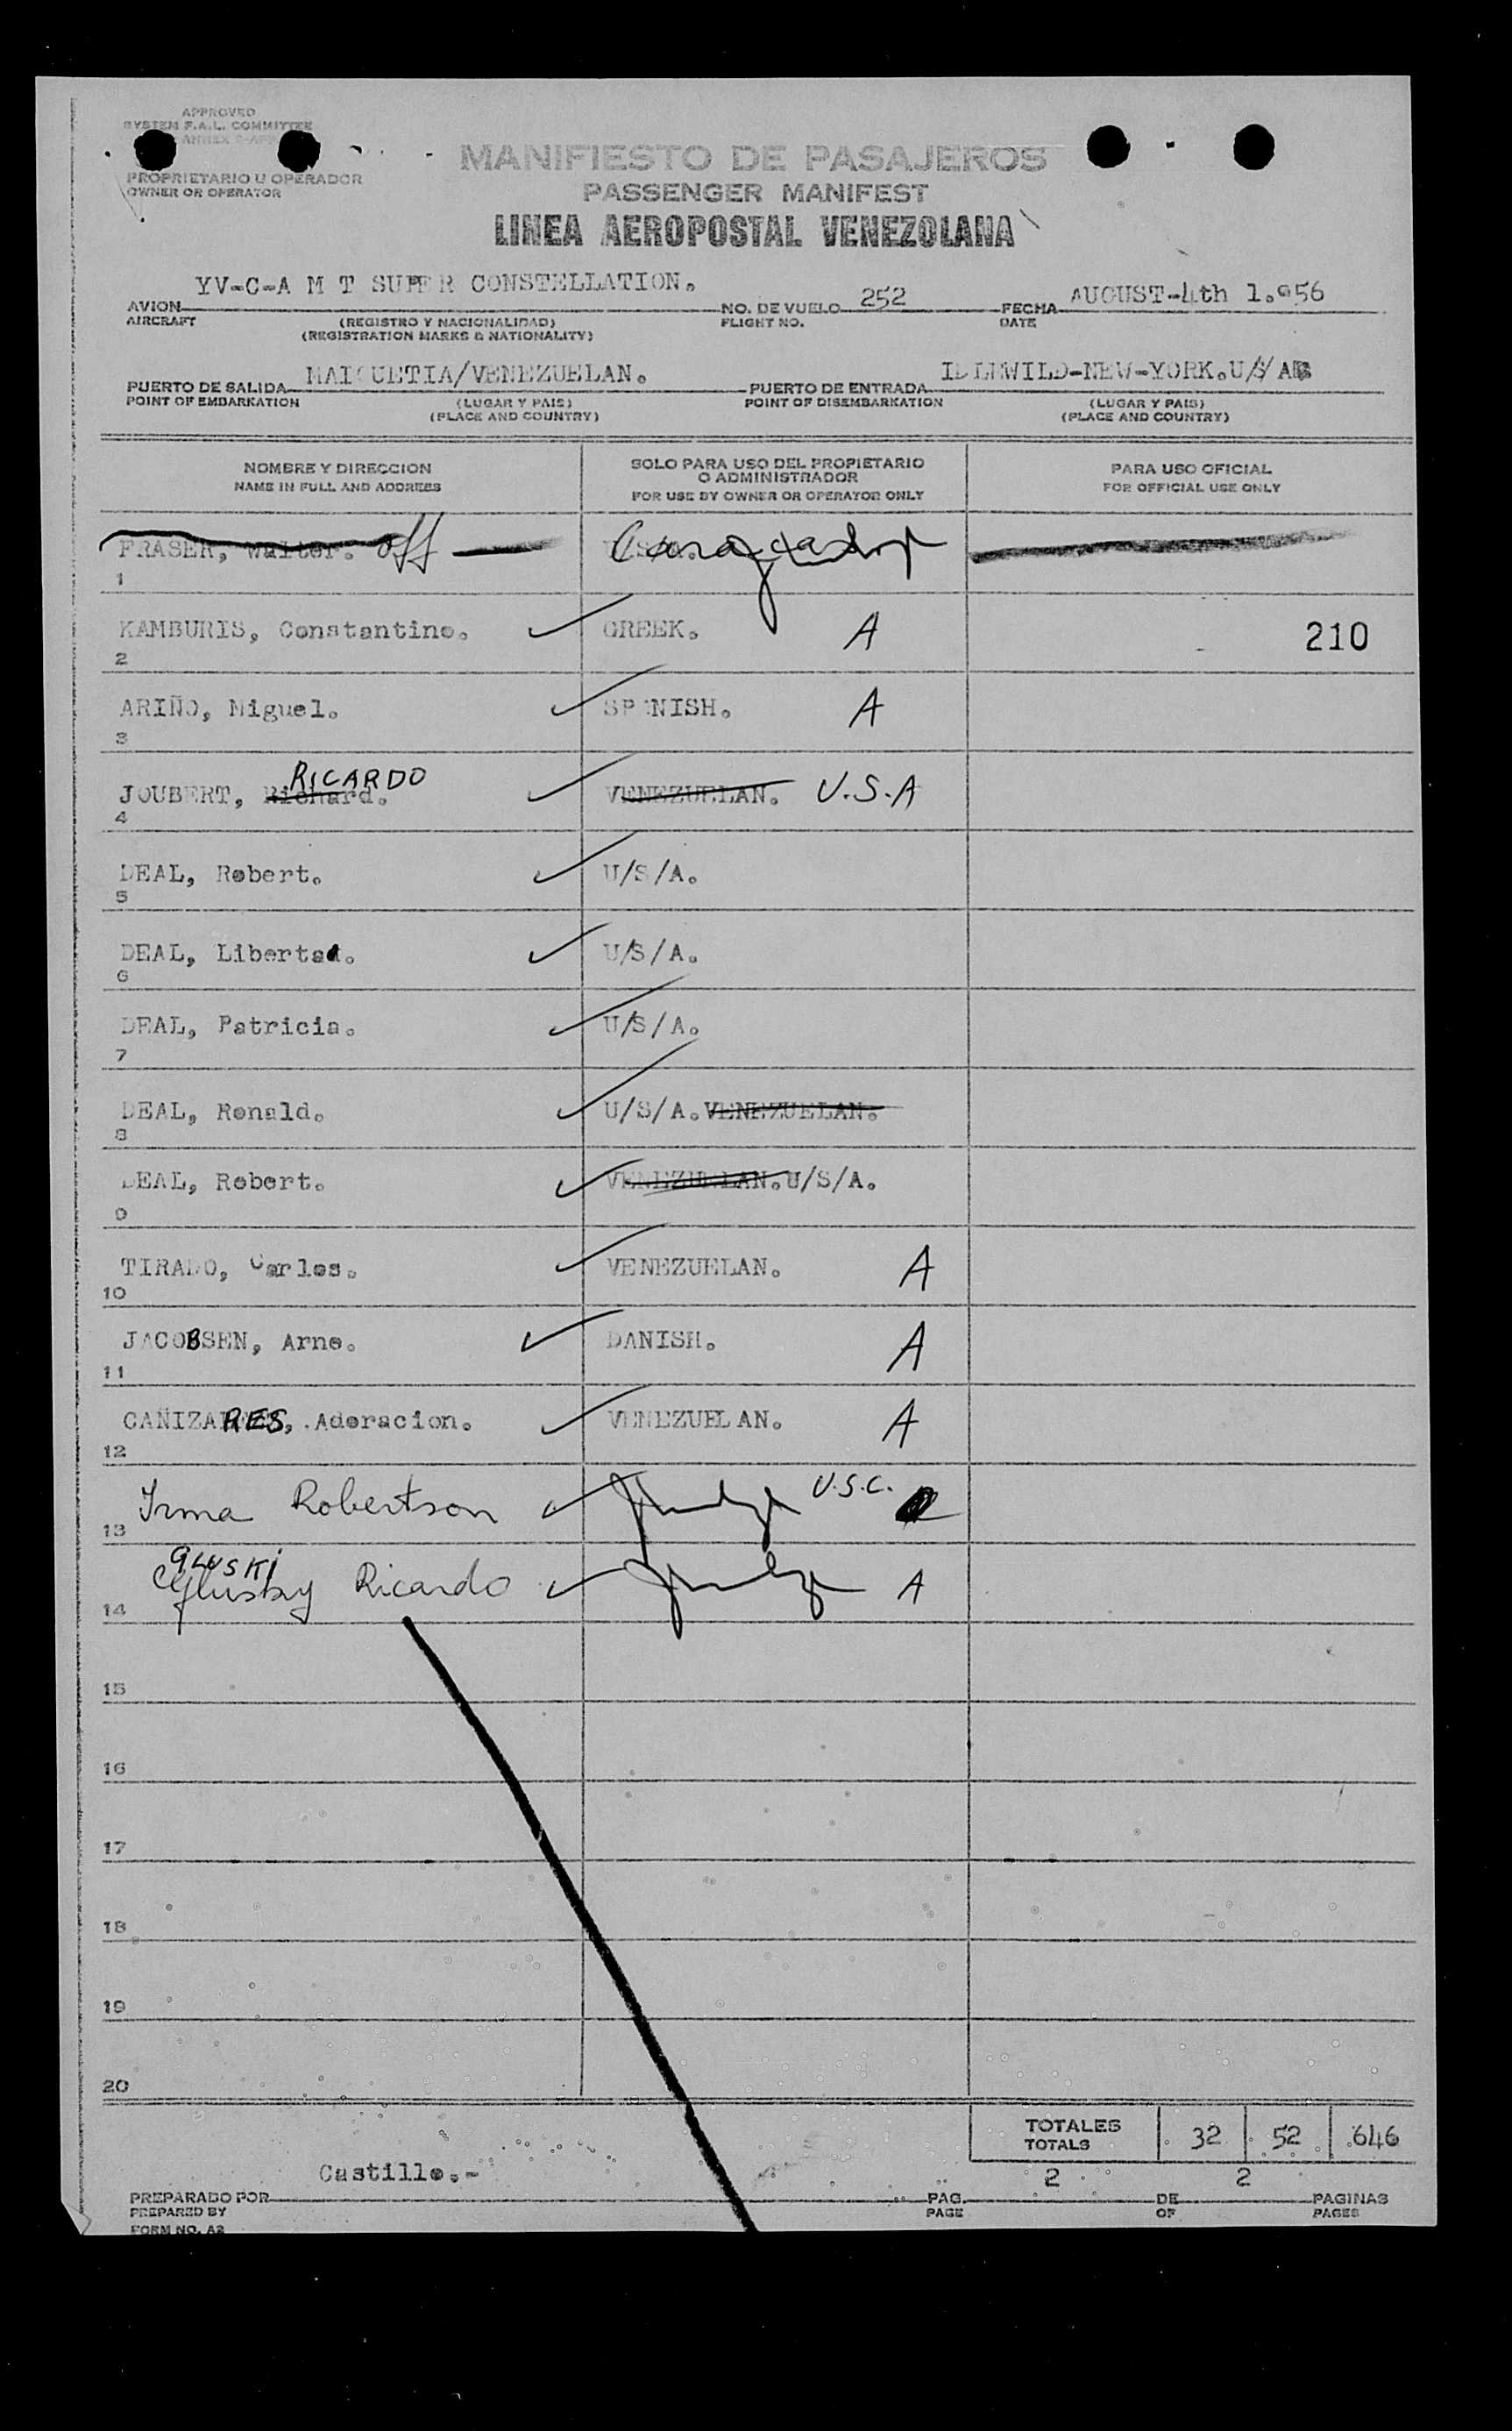 APPROVED
SYSTEM F.A.L. COMMITTEE
ANNEX
PROPRIETARIO U OPERADOR
OWNER OR OPERATOR
MANIFIESTO DE PASAJEROS
PASSENGER MANIFEST
LINEA AEROPOSTAL VENEZOLANA
AVION YV-C-A M T SUPER CONSTELLATION. NO. DE VUELO 252 FECHA AUGUST-4th 1.956
AIRCRAFT (REGISTRO Y NACIONALIDAD) FLIGHT NO. DATE
(REGISTRATION MARKS & NATIONALITY)
PUERTO DE SALIDA MAIQUETIA/VENEZUELAN. PUERTO DE ENTRADA IDLEWILD-NEW-YORK.U/S/A
POINT OF EMBARKATION (LUGAR Y PAIS) POINT OF DISEMBARKATION (LUGAR Y PAIS)
(PLACE AND COUNTRY) (PLACE AND COUNTRY)
NOMBRE Y DIRECCION SOLO PARA USO DEL PROPIETARIO PARA USO OFICIAL
O ADMINISTRADOR
NAME IN FULL AND ADDRESS FOR USE BY OWNER OR OPERATOR ONLY FOR OFFICIAL USE ONLY
FRASER, Walter. off
1
KAMBURIS, Constantino. GREEK. A 210
2
ARIÑO, Miguel. SPANISH. A
3
RICARDO
JOUBERT, Richard. VENEZUELAN. U.S.A
4
DEAL, Robert. U/S/A.
5
DEAL, Libertad. U/S/A.
6
DEAL, Patricia. U/S/A.
7
DEAL, Ronald. U/S/A. VENEZUELAN.
8
DEAL, Robert. VENEZUELAN. U/S/A.
9
TIRADO, Carlos. VENEZUELAN. A
10
JACOBSEN, Arne. DANISH. A
11
CAÑIZARES, Adoracion. VENEZUELAN. A
12
Irma Robertson U.S.C.
13
GLUSKI
Glusky Ricardo A
14
15
16
17
18
19
20
TOTALES 32 52 646
TOTALS
Castillo.-
2 2
PREPARADO POR PAG. DE PAGINAS
PREPARED BY PAGE OF PAGES
FORM NO. A2